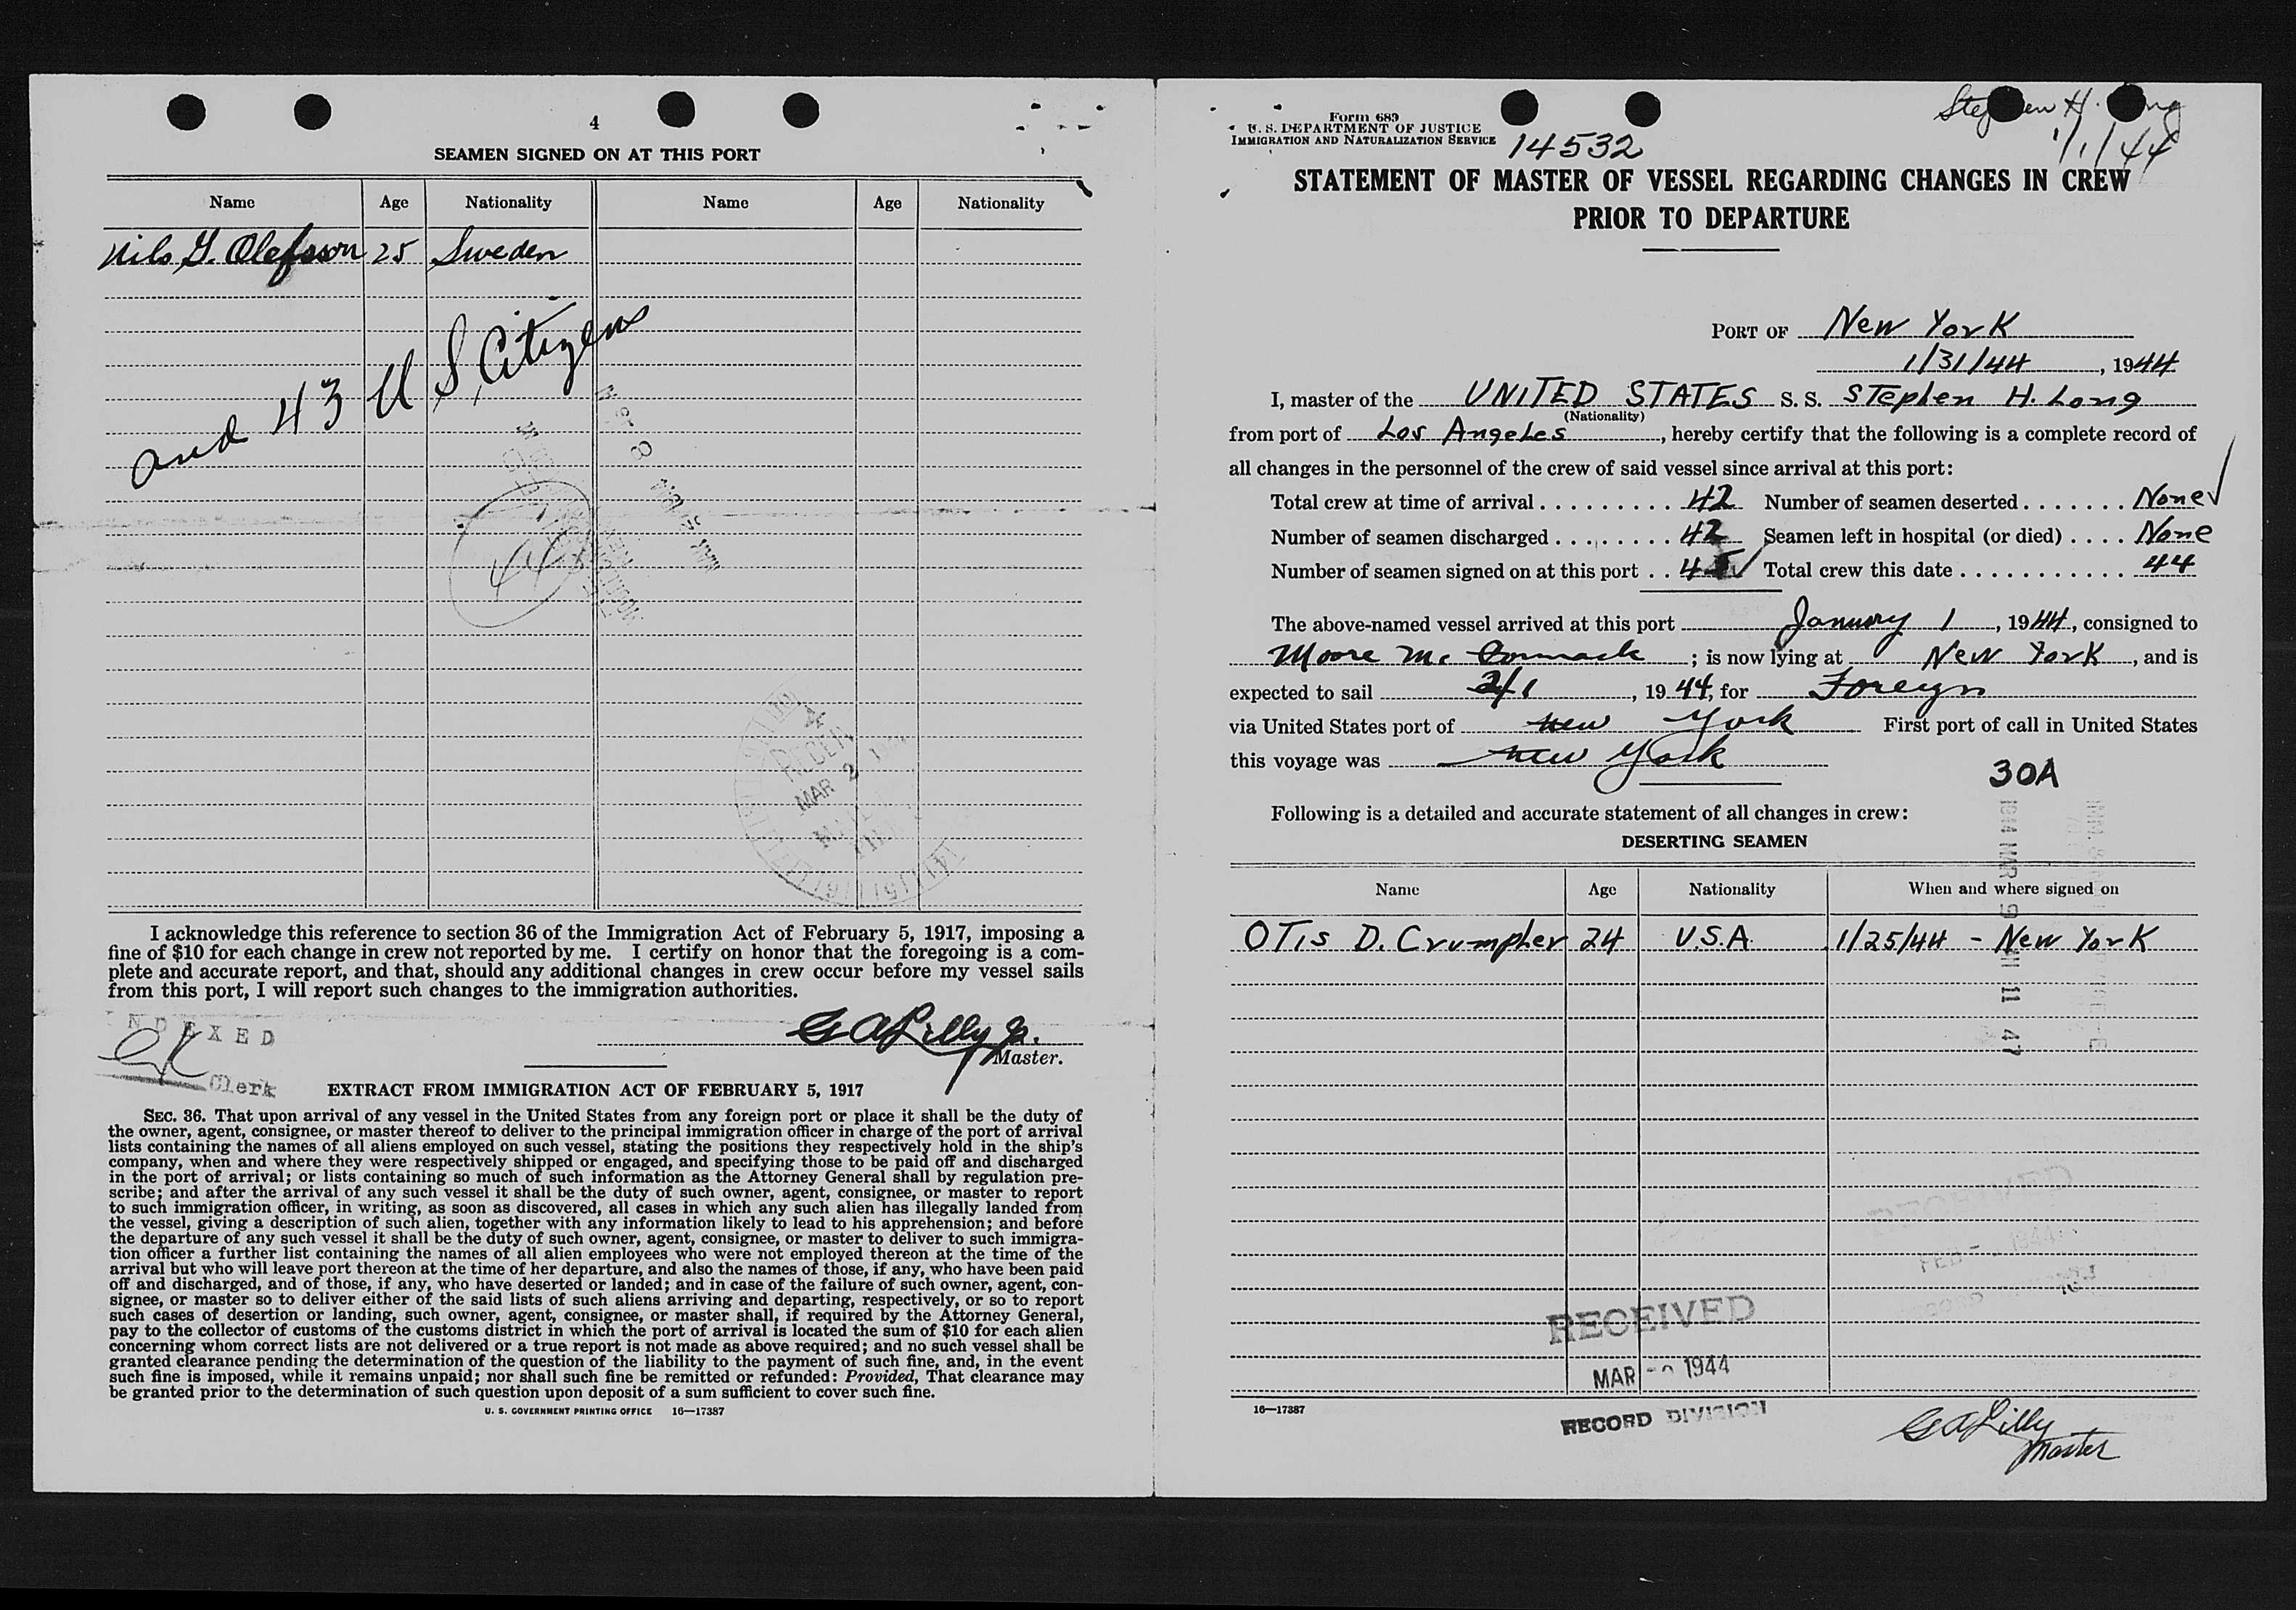 4
SEAMEN SIGNED ON AT THIS PORT
Name Age Nationality Name Age Nationality
Nils G. Olefsson 25 Sweden
and 43 U.S. Citizens
44
MAR 2
I acknowledge this reference to section 36 of the Immigration Act of February 5, 1917, imposing a
fine of $10 for each change in crew not reported by me. I certify on honor that the foregoing is a com-
plete and accurate report, and that, should any additional changes in crew occur before my vessel sails
from this port, I will report such changes to the immigration authorities.
INDEXED
Clerk
G A Lilly Jr.
Master.
EXTRACT FROM IMMIGRATION ACT OF FEBRUARY 5, 1917
SEC. 36. That upon arrival of any vessel in the United States from any foreign port or place it shall be the duty of
the owner, agent, consignee, or master thereof to deliver to the principal immigration officer in charge of the port of arrival
lists containing the names of all aliens employed on such vessel, stating the positions they respectively hold in the ship's
company, when and where they were respectively shipped or engaged, and specifying those to be paid off and discharged
in the port of arrival; or lists containing so much of such information as the Attorney General shall by regulation pre-
scribe; and after the arrival of any such vessel it shall be the duty of such owner, agent, consignee, or master to report
to such immigration officer, in writing, as soon as discovered, all cases in which any such alien has illegally landed from
the vessel, giving a description of such alien, together with any information likely to lead to his apprehension; and before
the departure of any such vessel it shall be the duty of such owner, agent, consignee, or master to deliver to such immigra-
tion officer a further list containing the names of all alien employees who were not employed thereon at the time of the
arrival but who will leave port thereon at the time of her departure, and also the names of those, if any, who have been paid
off and discharged, and of those, if any, who have deserted or landed; and in case of the failure of such owner, agent, con-
signee, or master so to deliver either of the said lists of such aliens arriving and departing, respectively, or so to report
such cases of desertion or landing, such owner, agent, consignee, or master shall, if required by the Attorney General,
pay to the collector of customs of the customs district in which the port of arrival is located the sum of $10 for each alien
concerning whom correct lists are not delivered or a true report is not made as above required; and no such vessel shall be
granted clearance pending the determination of the question of the liability to the payment of such fine, and, in the event
such fine is imposed, while it remains unpaid; nor shall such fine be remitted or refunded: Provided, That clearance may
be granted prior to the determination of such question upon deposit of a sum sufficient to cover such fine.
U. S. GOVERNMENT PRINTING OFFICE 16—17387
Stephen H. Long
1/1/44
Form 689
U. S. DEPARTMENT OF JUSTICE
IMMIGRATION AND NATURALIZATION SERVICE 14532
STATEMENT OF MASTER OF VESSEL REGARDING CHANGES IN CREW
PRIOR TO DEPARTURE
PORT OF New York
1/31/44, 1944
I, master of the UNITED STATES S. S. Stephen H. Long
(Nationality)
from port of Los Angeles, hereby certify that the following is a complete record of
all changes in the personnel of the crew of said vessel since arrival at this port:
Total crew at time of arrival . . . . . . . . . 42 Number of seamen deserted . . . . . . . None
Number of seamen discharged . . . . . . . . 42 Seamen left in hospital (or died) . . . . None
Number of seamen signed on at this port . . 45 Total crew this date . . . . . . . . . . . . 44
The above-named vessel arrived at this port January 1, 1944, consigned to
Moore Mc Cormack; is now lying at New York, and is
expected to sail 2/1, 1944, for Foreign
via United States port of New York First port of call in United States
this voyage was New York
30A
Following is a detailed and accurate statement of all changes in crew:
DESERTING SEAMEN
Name Age Nationality When and where signed on
OTis D. Crumpher 24 U.S.A. 1/25/44 - New York
1944 MAR 9 AM 11 47
RECEIVED
FEB 1944
RECEIVED
MAR 1944
RECORD DIVISION
16—17387
G A Lilly
Master